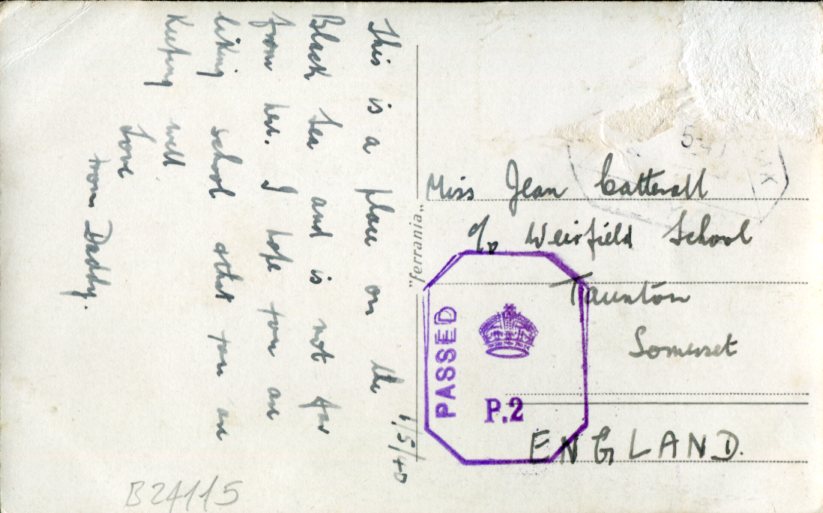 1/5/40
This is a place on the
Black Sea and is not far
from here. I hope you are
liking school & that you are
keeping well
Love
from Daddy.
"ferrania"
Miss Jean Catterall
c/o Weirfield School
Taunton
Somerset
ENGLAND.
PASSED
P.2
B24115